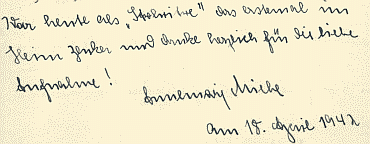 War heute als „Strohwitwe" das erstemal im
Heim Zenker und danke herzlich für die liebe
Aufnahme!
Annemarie Miebe
am 18. April 1942